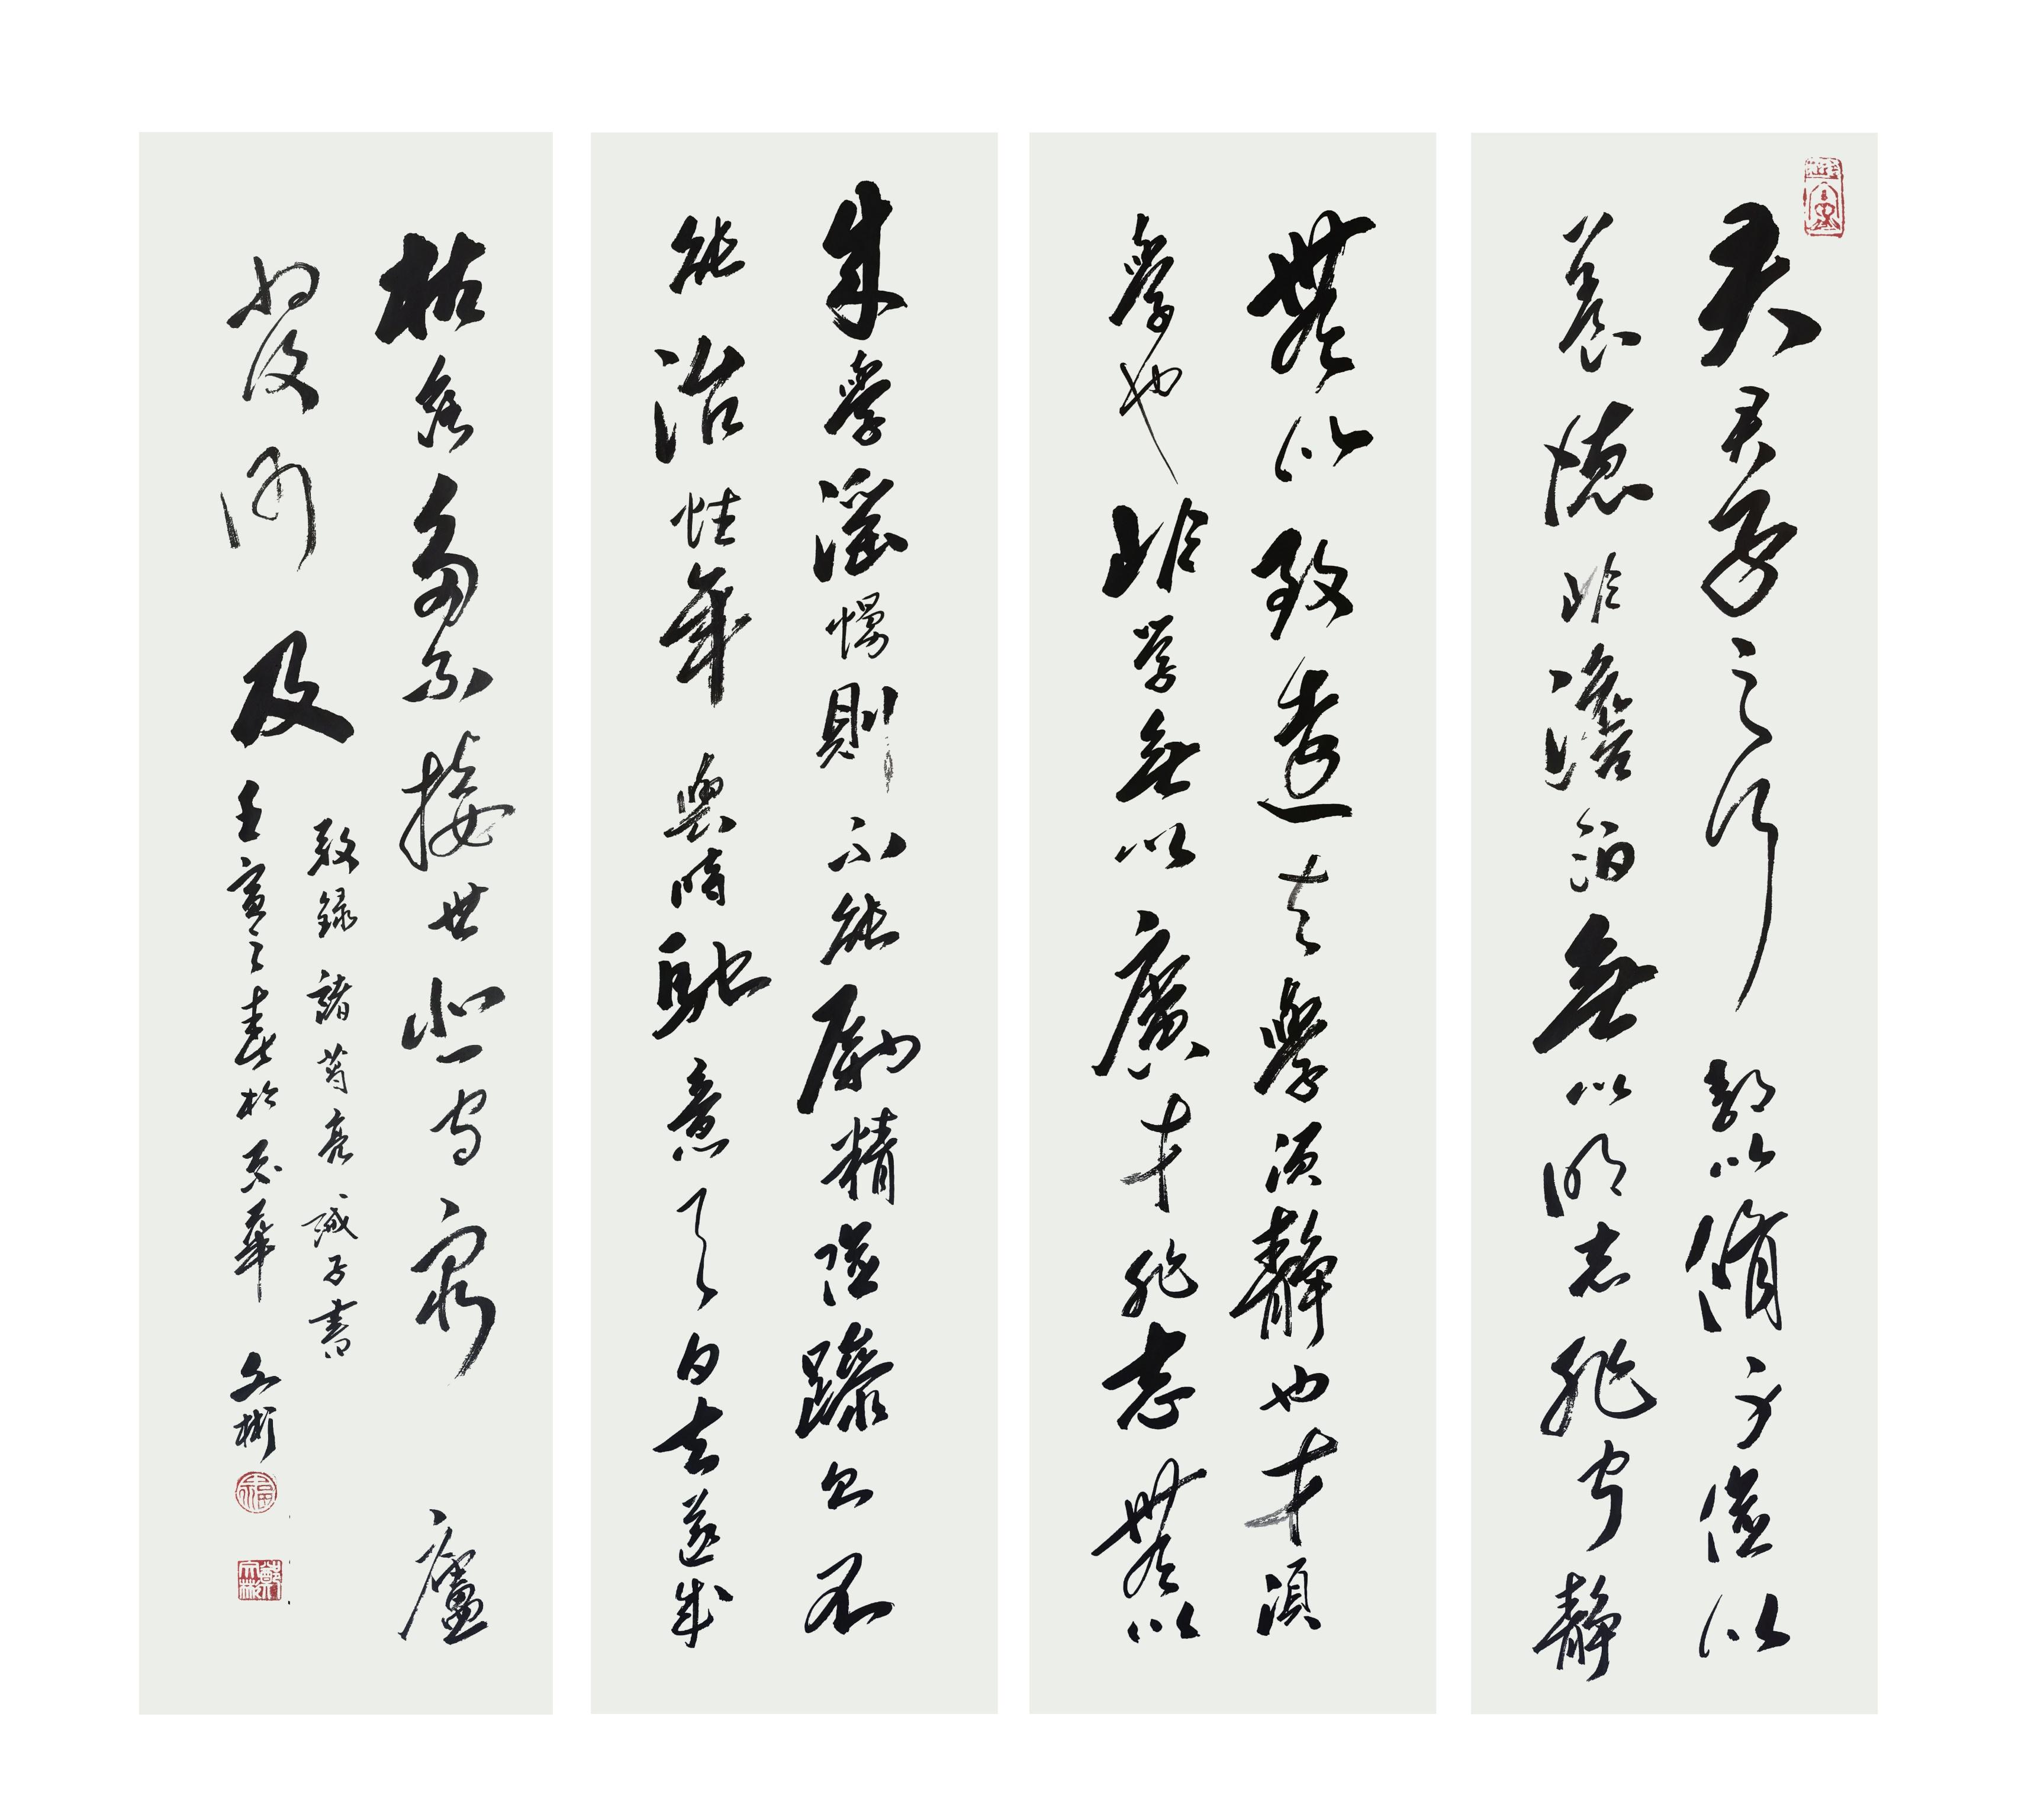 夫君子之行靜以脩身儉以
養德非澹泊無以明志非寧靜
無以致遠夫學須靜也才須
學也非學無以廣才非志無以
成學滛慢則不能勵精險躁則不
能治性年與時馳意與日去遂成
枯落多不接世悲守窮廬
將復何及
敬録諸葛亮誡子書
壬寅之春於京華 文彬
鄭文彬